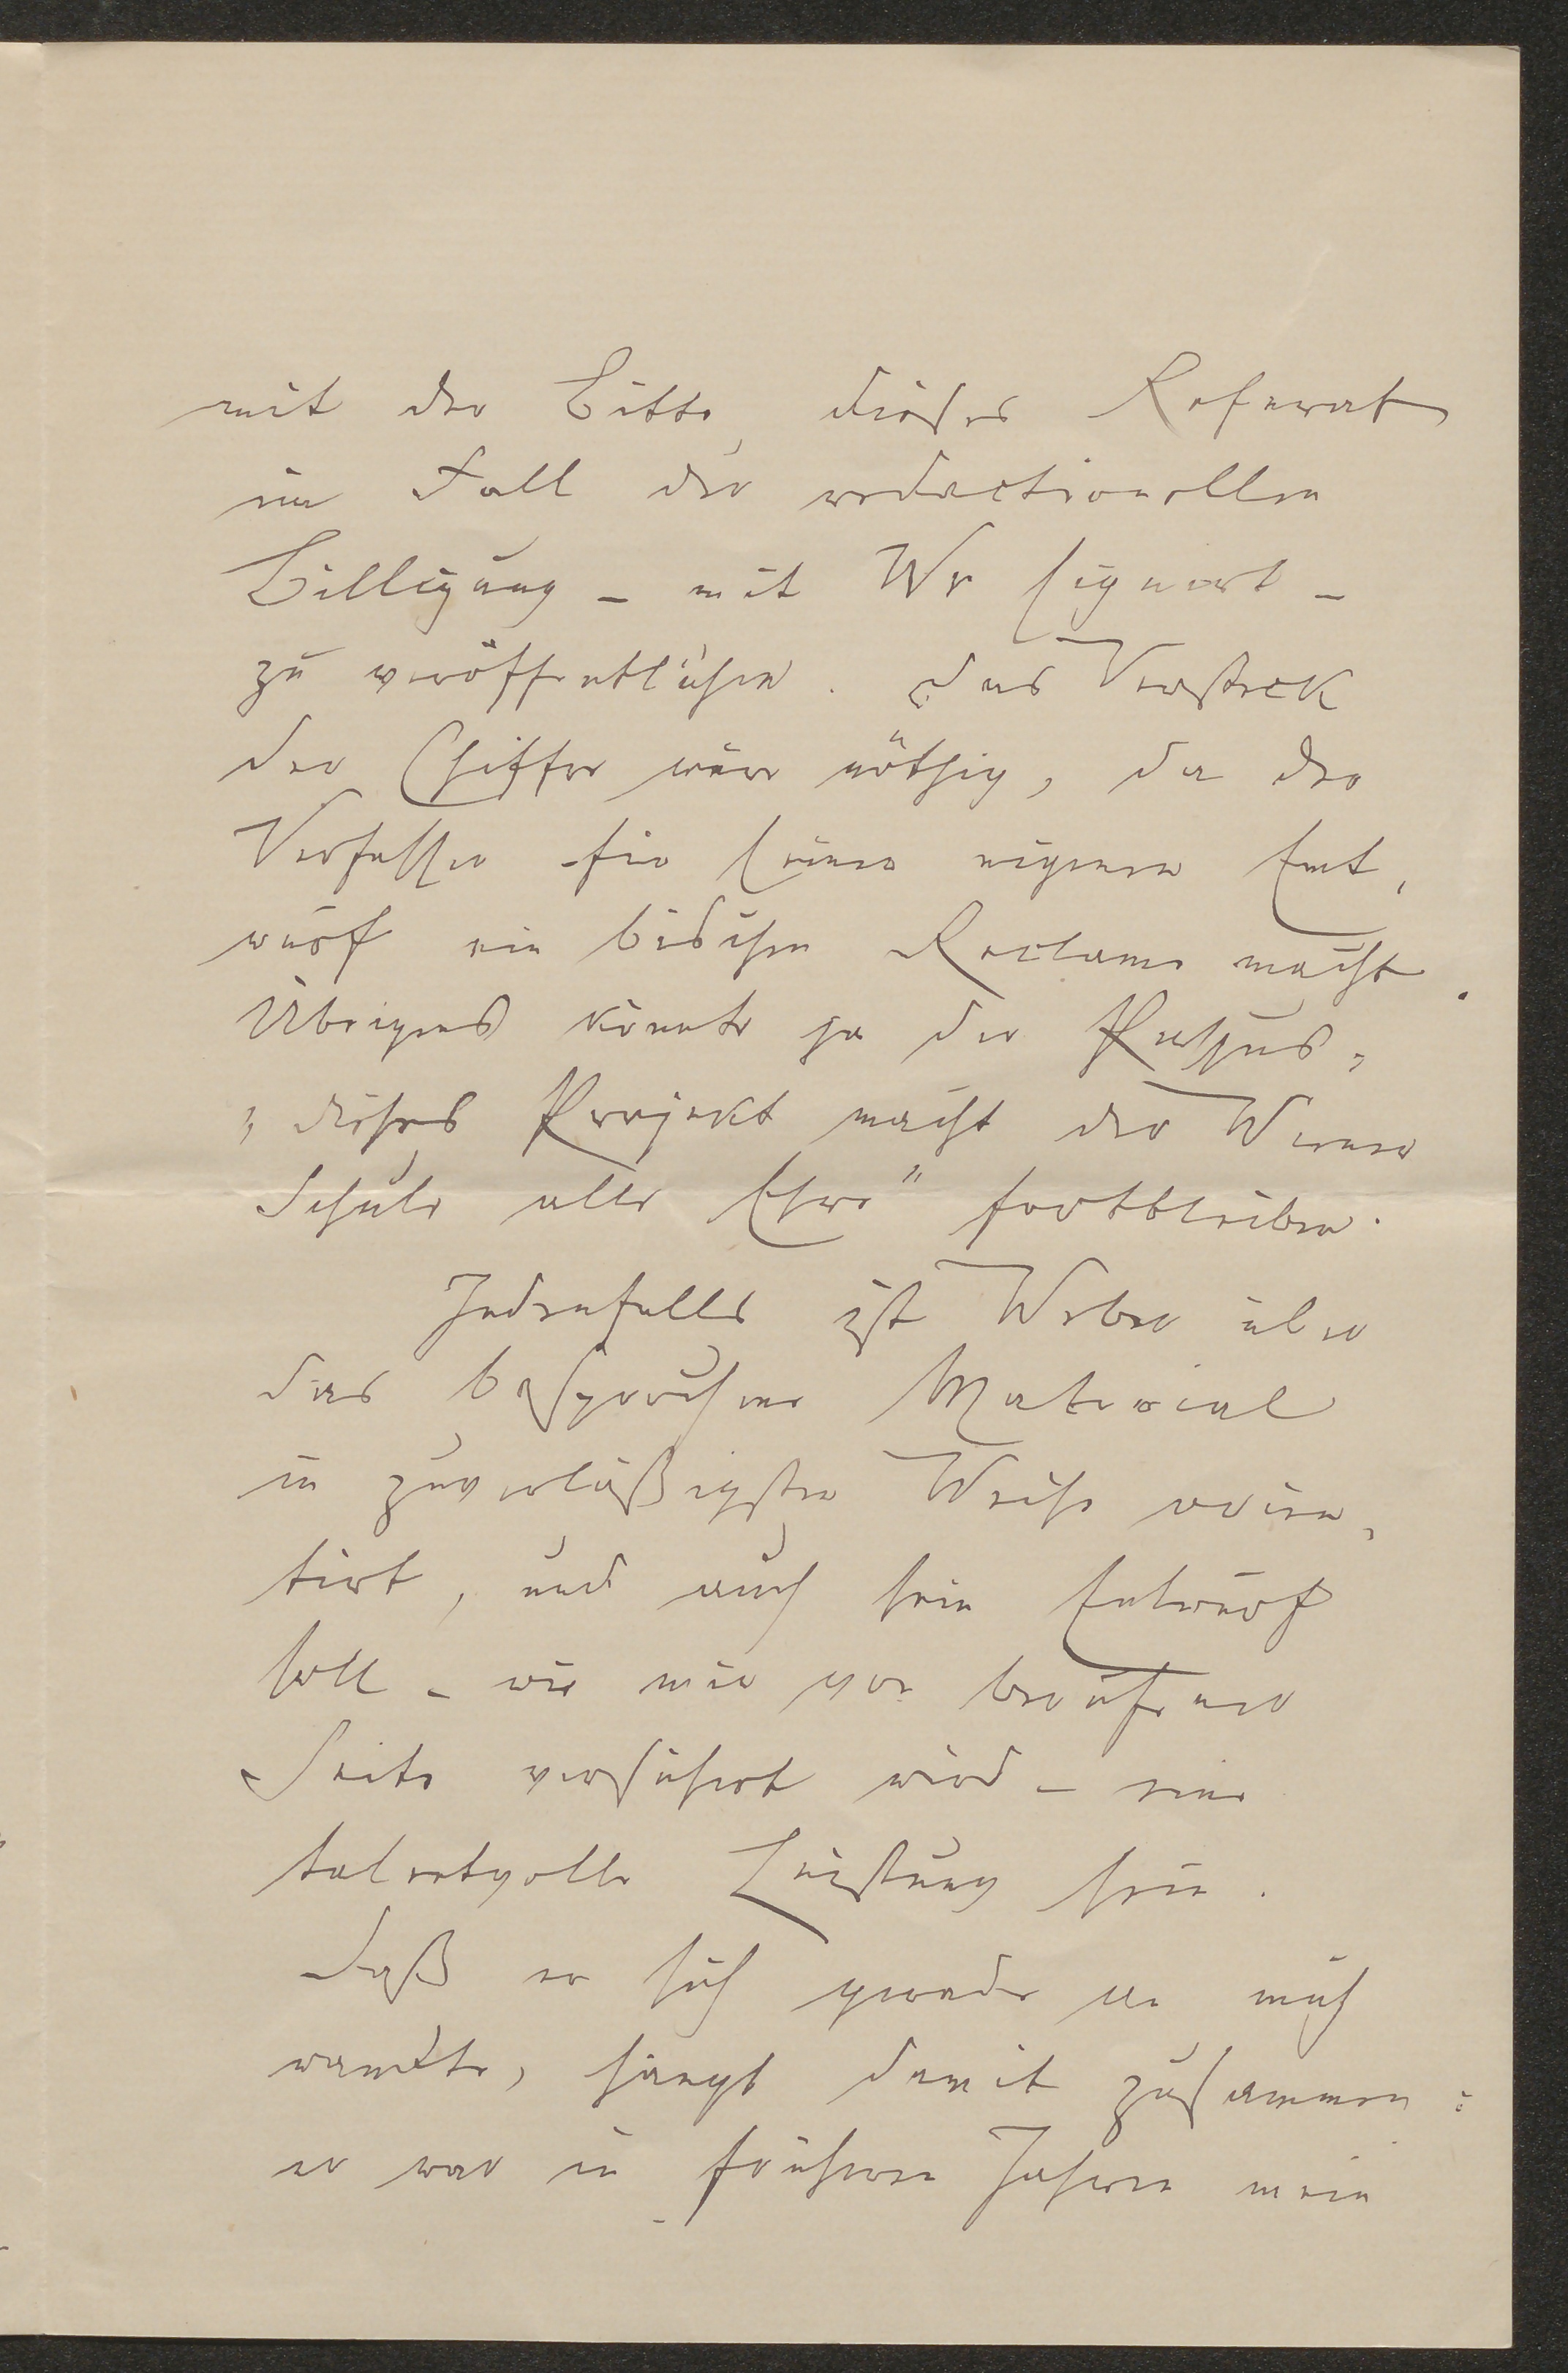 mit der Bitte, dieses Referat
im Fall der redactionellen
Billigung – mit Wr signirt –
zu veröffentlichen. Das Versteck
der Chiffre wäre nöthig, da der
Verfasser für seinen eigenen Ent-
wurf ein bischen Reclame macht.
Übrigens könnte ja der Passus,
„dieses Projekt macht der Wiener
Schule alle Ehre" fortbleiben.
Jedenfalls ist Weber über
das besprochene Material
in zuverläßigster Weise orien-
tirt, und auch sein Entwurf
soll – wie mir von berufener
Seite versichert wird – eine
talentvolle Leistung sein.
Daß er sich gerade an mich
wandte, hängt damit zusammen:
er war in früheren Jahren mein